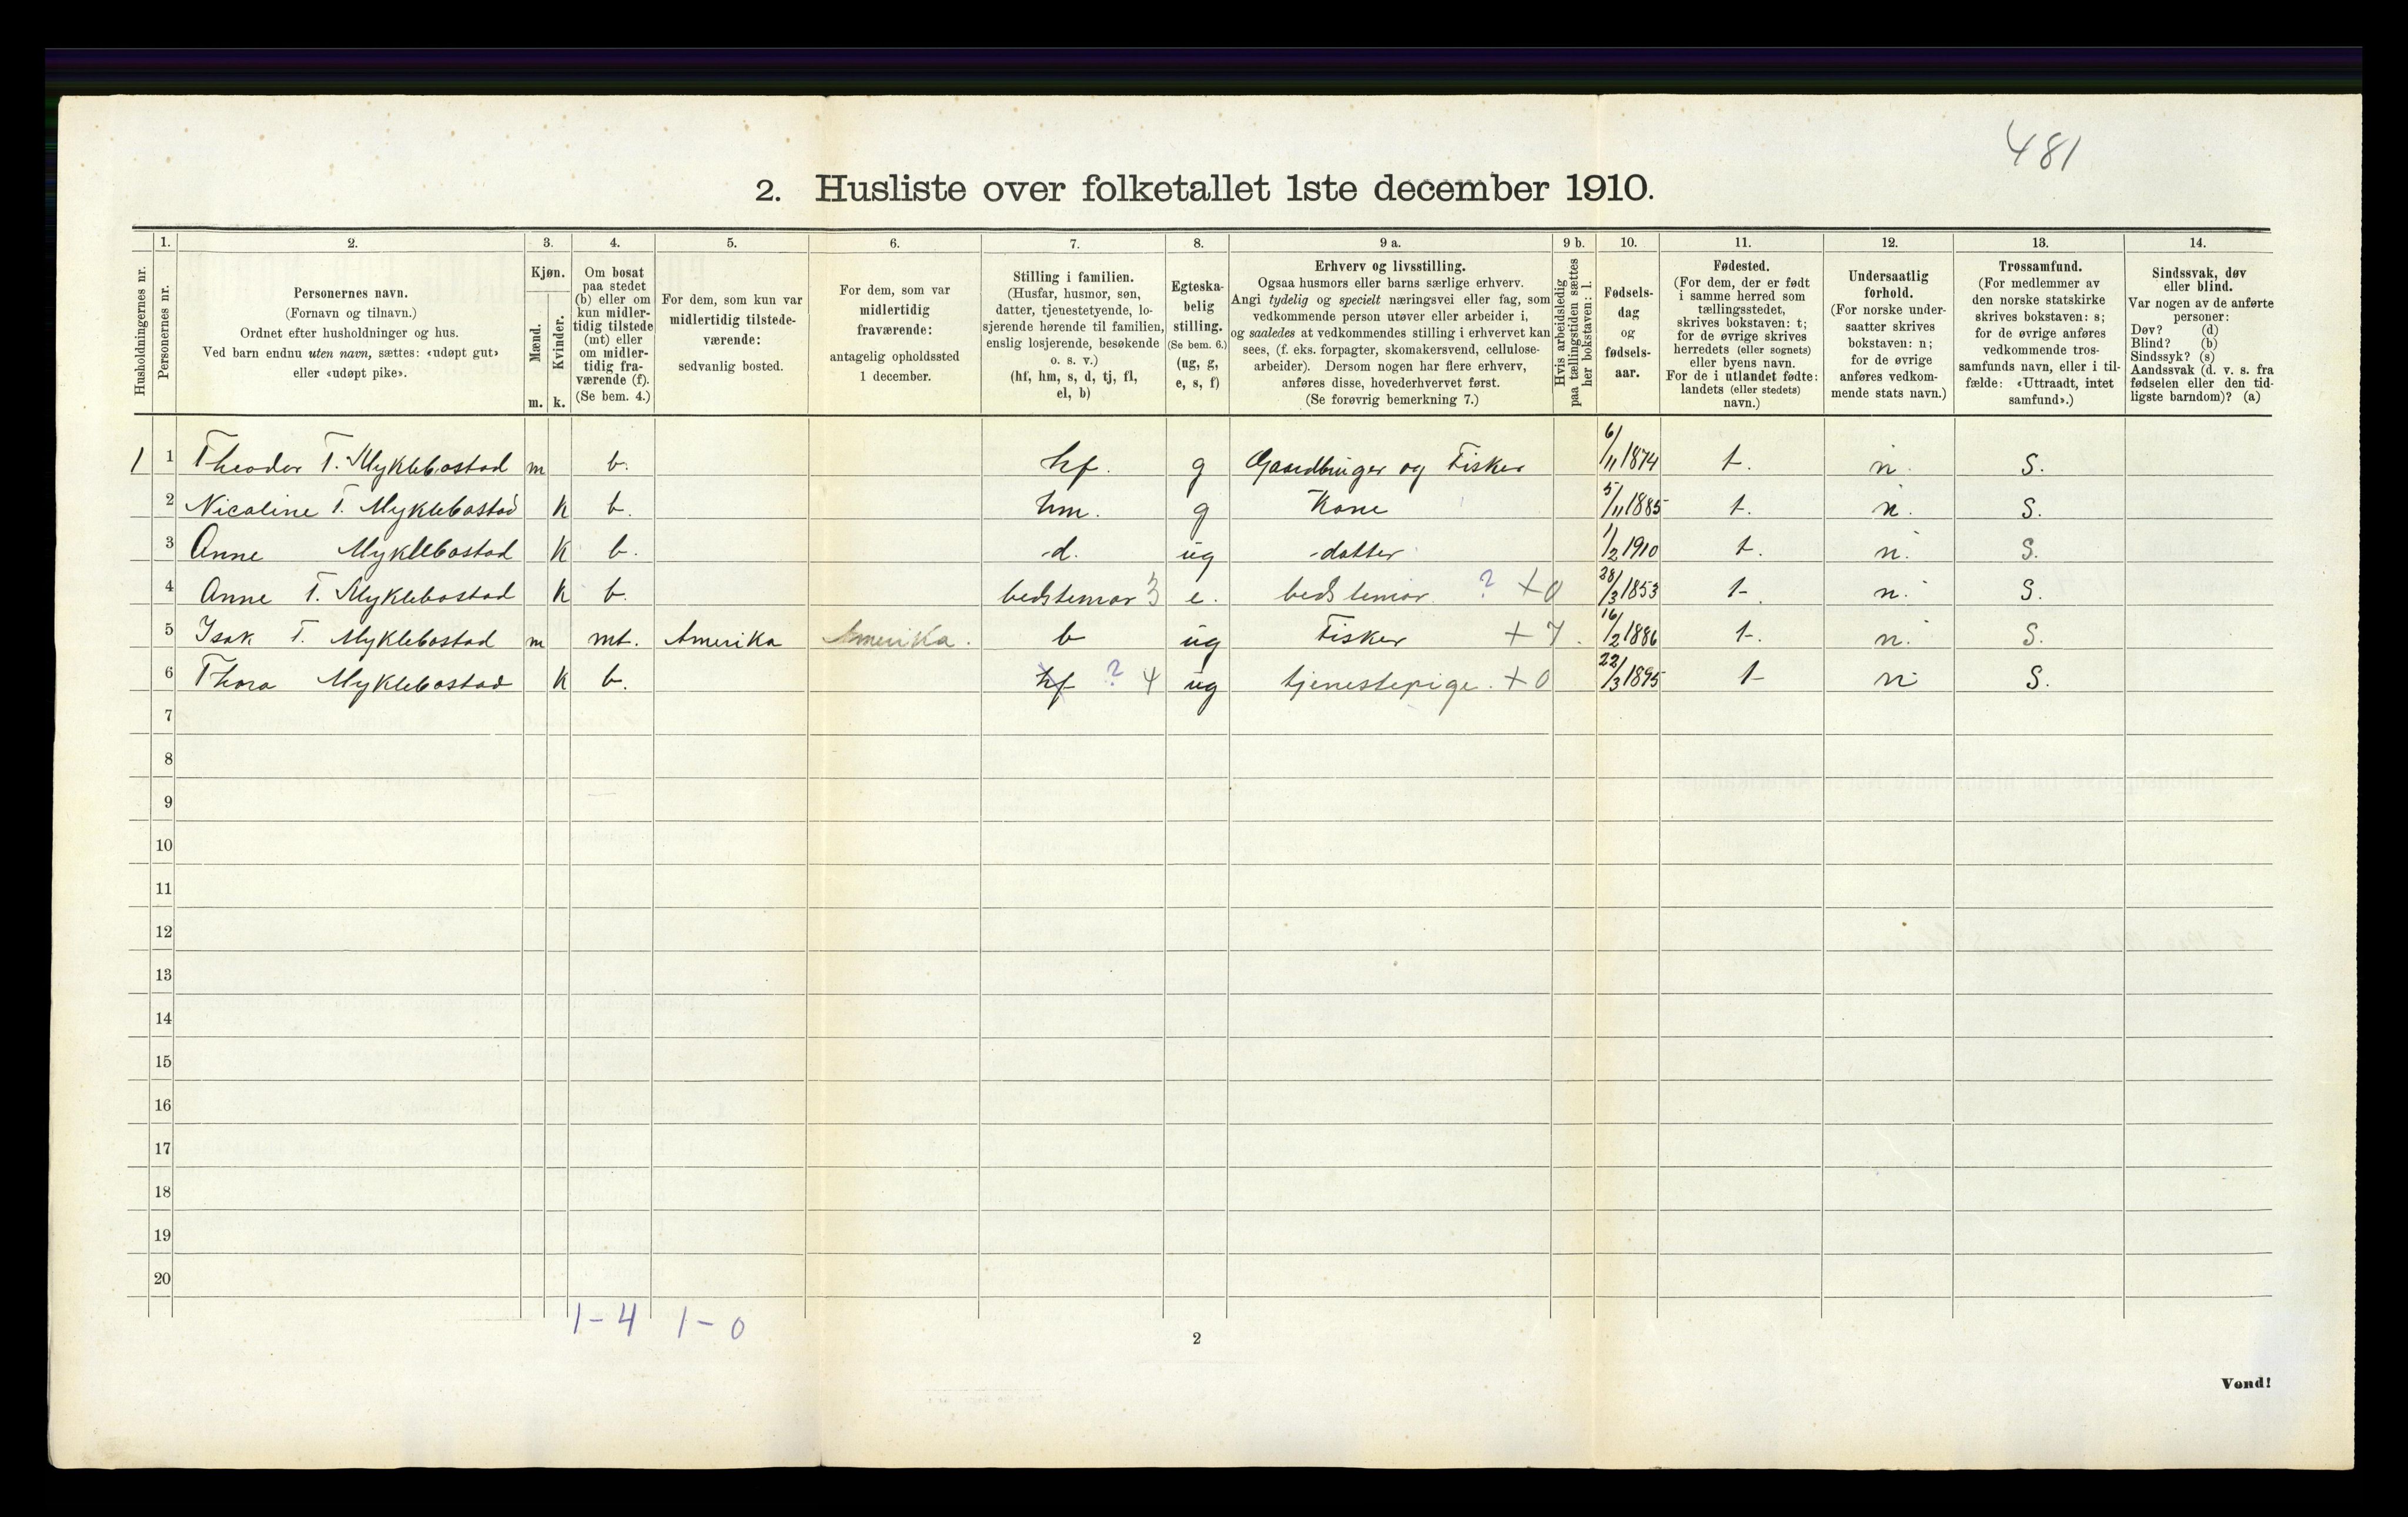 481
2. Husliste over folketallet 1ste december 1910.
Husholdningernes nr.
1.
Personernes nr.
2.
Personernes navn.
(Fornavn og tilnavn.)
Ordnet efter husholdninger og hus.
Ved barn endnu uten navn, sættes: «udøpt gut»
eller «udøpt pike».
3.
Kjøn.
Mænd.
Kvinder.
m. k.
4.
Om bosat
paa stedet
(b) eller om
kun midler-
tidig tilstede
(mt) eller
om midler-
tidig fra-
værende (f).
(Se bem. 4.)
5.
For dem, som kun var
midlertidig tilstede-
værende:
sedvanlig bosted.
6.
For dem, som var
midlertidig
fraværende:
antagelig opholdssted
1 december.
7.
Stilling i familien.
(Husfar, husmor, søn,
datter, tjenestetyende, lo-
sjerende hørende til familien,
enslig losjerende, besøkende
o. s. v.)
(hf, hm, s, d, tj, fl,
el, b)
8.
Egteska-
belig
stilling.
(Se bem. 6.)
(ug, g,
e, s, f)
9 a.
Erhverv og livsstilling.
Ogsaa husmors eller barns særlige erhverv.
Angi tydelig og specielt næringsvei eller fag, som
vedkommende person utøver eller arbeider i,
og saaledes at vedkommendes stilling i erhvervet kan
sees, (f. eks. forpagter, skomakersvend, cellulose-
arbeider). Dersom nogen har flere erhverv,
anføres disse, hovederhvervet først.
(Se forøvrig bemerkning 7.)
9 b.
Hvis arbeidsledig
paa tællingstiden sættes
her bokstaven: l.
10.
Fødsels-
dag
og
fødsels-
aar.
11.
Fødested.
(For dem, der er født
i samme herred som
tællingsstedet,
skrives bokstaven: t;
for de øvrige skrives
herredets (eller sognets)
eller byens navn.
For de i utlandet fødte:
landets (eller stedets)
navn.)
12.
Undersaatlig
forhold.
(For norske under-
saatter skrives
bokstaven: n;
for de øvrige
anføres vedkom-
mende stats navn.)
13.
Trossamfund.
(For medlemmer av
den norske statskirke
skrives bokstaven: s;
for de øvrige anføres
vedkommende tros-
samfunds navn, eller i til-
fælde: «Uttraadt, intet
samfund».)
14.
Sindssvak, døv
eller blind.
Var nogen av de anførte
personer:
Døv? (d)
Blind? (b)
Sindssyk? (s)
Aandssvak (d. v. s. fra
fødselen eller den tid-
ligste barndom)? (a)
1 1 Theodor T. Myklebostad m b. hf. g Gaardbruger og Fisker 6/11 1874 t. n. S.
2 Nicoline T. Myklebostad k b. hm. g Kone 5/11 1885 t. n. S.
3 Anne Myklebostad k b. d. ug datter 1/2 1910 t. n. S.
4 Anne T. Myklebostad k b. bedstemor 3 e. bedstemor ? + 0 28/3 1853 t n. S.
5 Isak T. Myklebostad m mt. Amerika Amerika. b ug Fisker + 7. 16/2 1886 t. n. S.
6 Thora Myklebostad k b. hf ? 4 ug tjenestepige. + 0 22/3 1895 t n S.
7
8
9
10
11
12
13
14
15
16
17
18
19
20
1-4 1-0
2
Vend!